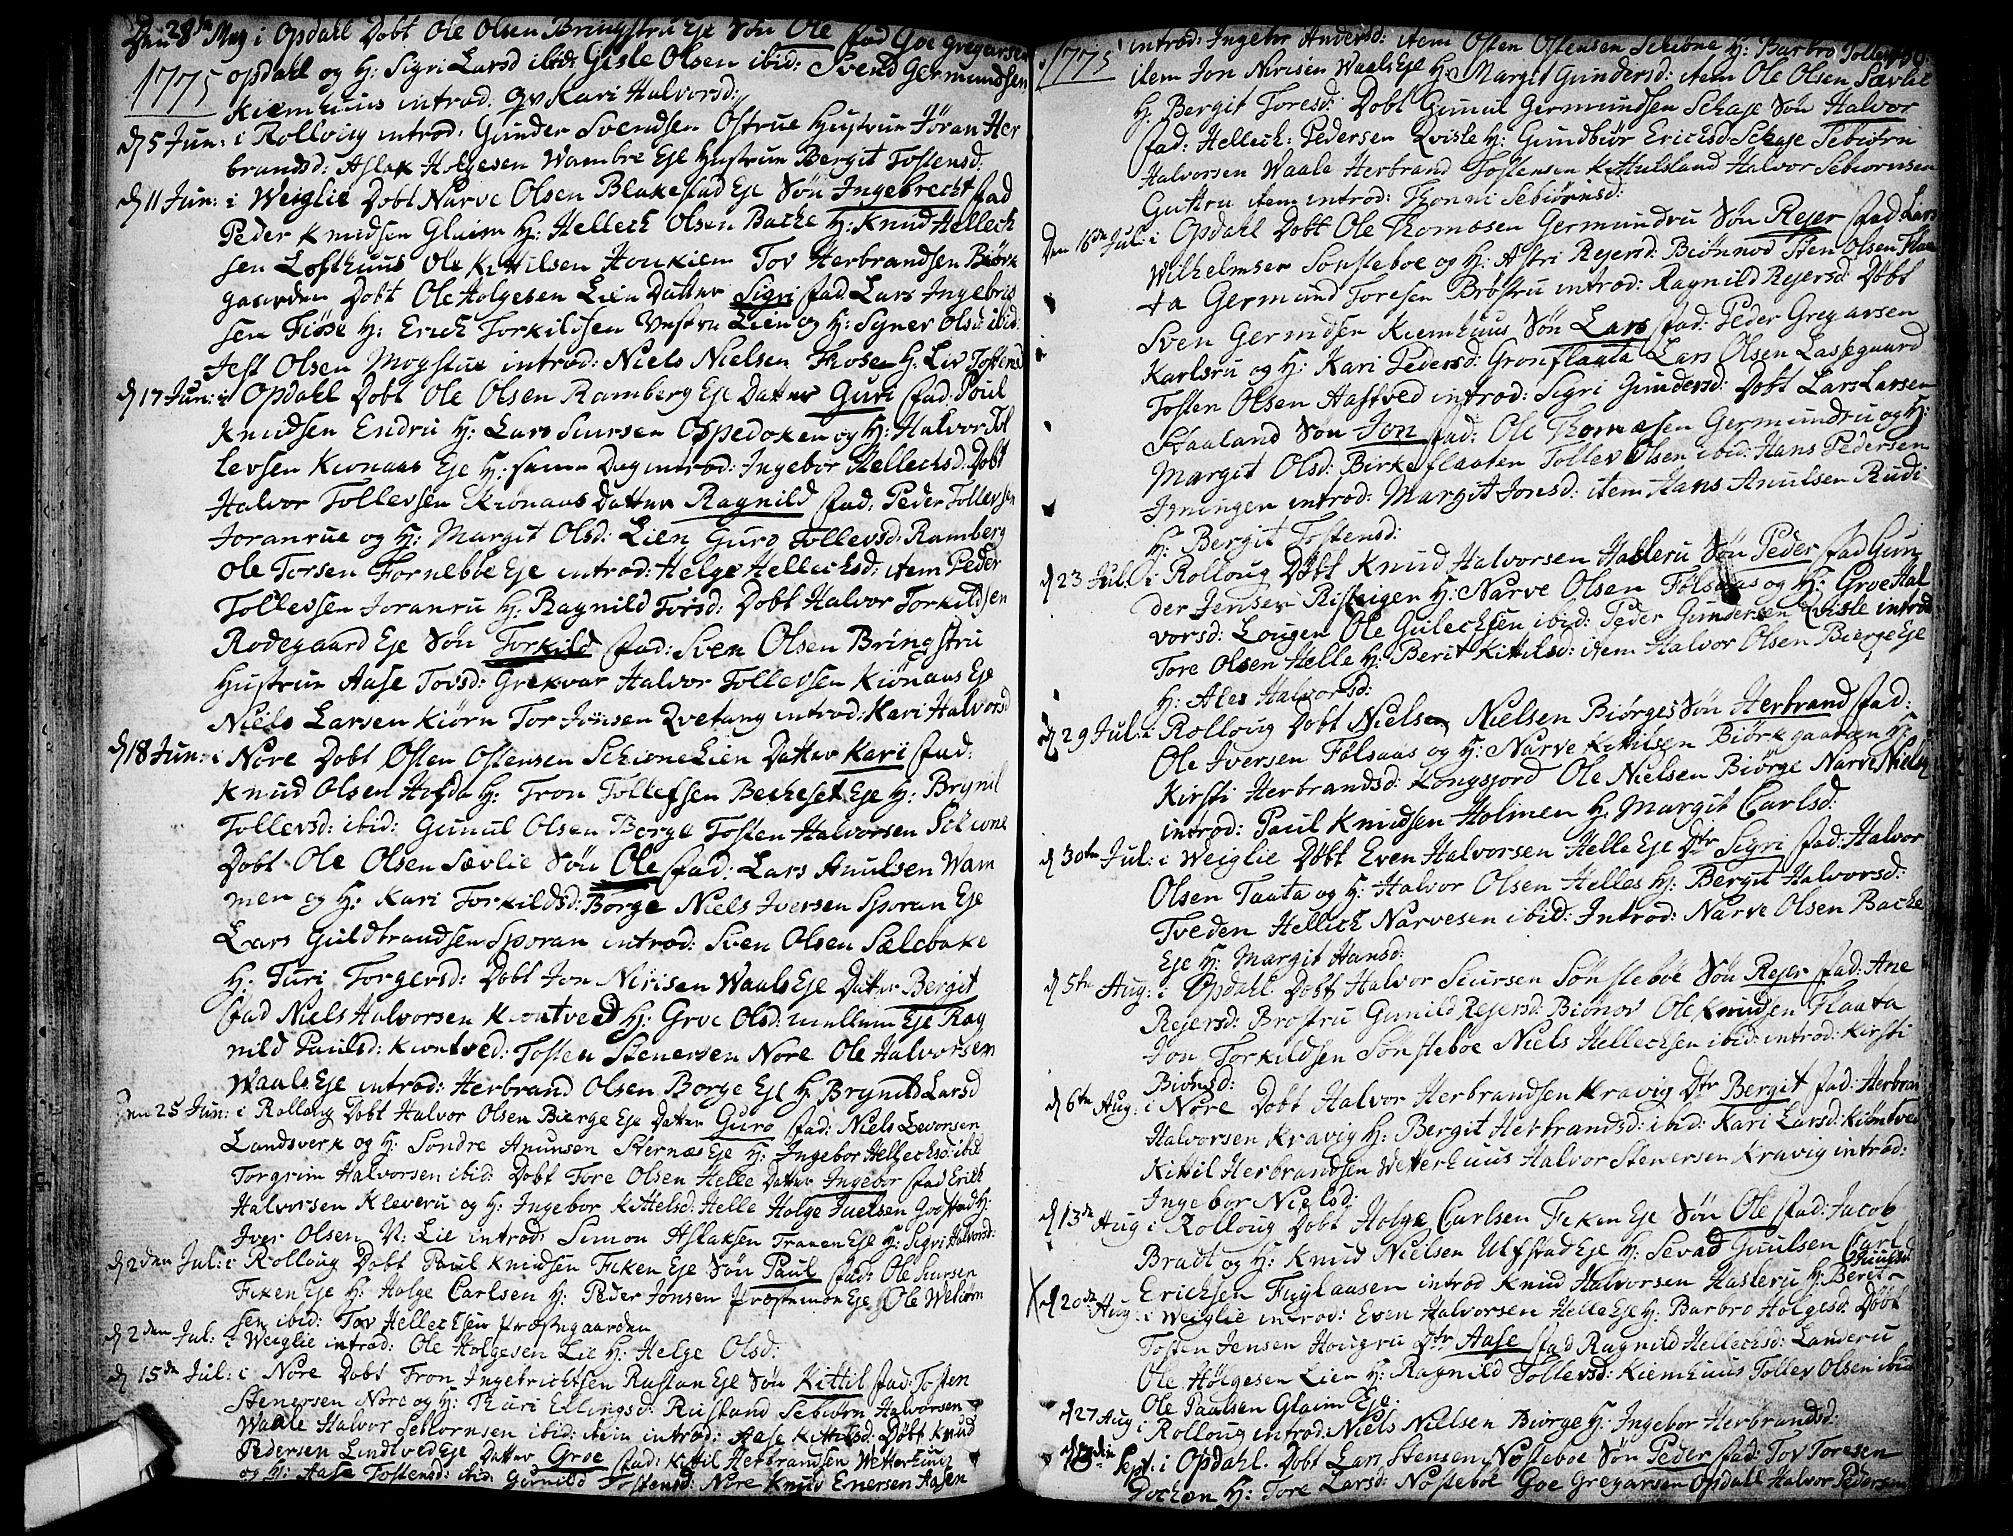 Den 28de May i Opdahl Dobt Ole Olsen Bringstru Eje Søn Ole fad Goe Gregarsen
1775 Opdahl og H: Sigri Larsd ibid: Gisle Olsen ibid: Svend Germundsen
Kiemhuus introd: Qv Kari Halvorsd:
d 5 Jun: i Rolloug introd: Gunder Svendsen Østrue Hustrue Jøran Her
brandsd: Aslak Holgesen Wambre Eje Hustrue Bergit Tostensd:
d 11 Jun: i Weiglie Dobt Narve Olsen Blakestad Eje Søn Ingebrecht fad
Peder Knudsen Glaim H: Hellech Olsen Bache H: Knud Hellech
sen Lofthuus Ole Kittilsen Houkiem Tov Herbrandsen Biørk
gaarden Dobt Ole Holgesen Lien Datter Sigri fad Lars Ingebrig
sen Fiøse H: Erich Torkildsen Lien og H: Synev Olsd: ibid:
Jest Olsen Mogstue introd: Niels Nielsen H: Liv Tostensd
d 17 Jun: i Opdahl Dobt Ole Olsen Ramberg Eje Datter Guri fad: Poul
Knudsen Endru H: Lars Siursen Ospedoken og H: Halvor Tol
levsen Kionaas Eje H: samme Dag introd: Ingebor Hellechsd: Dobt
Halvor Tollevsen Kiønaas Datter Ragnild fad: Peder Tollevsen
Joranrue og H: Margit Olsd: Lien Guro Tollevsd: Ramberg
Ole Torsen Forneboe Eje introd: Helge Hellechsd: item Peder
Tollevsen Joranru H: Ragnild Torsd: Dobt Halvor Torkildsen
Rodegaard Eje Søn Torkild fad: Sven Olsen Bringstru
Hustrue Aase Tovsd: Grekvar Halvor Tollevsen Kiønaas Eje
Niels Larsen Kiørn Tor Jonsen Qvetang introd: Kari Halvorsd
d 18 Jun: i Nore Dobt Østen Ostensen Schione Lien Datter Kari fad:
Knud Olsen Hofda H: Tron Tollefsen Becheset Eje H: Brynil
Tollevsd: ibid: Gunul Olsen Borge Tosten Halvorsen Schione
Dobt Ole Olsen Sævlie Søn Ole fad: Lars Anulsen Wam
men og H: Kari Torkildsd: Borge Niels Iversen Sporan Eje
Lars Guldbrandsen Sporan introd: Sven Olsen Sælebake
H: Turi Torgersd: Dobt Jon Nirisen Waals Eje Datter Bergit
fad Niels Halvorsen Kiontved H: Groe Olsd: mellum Eje Rag
nild Paulsd: Kiontved: Tosten Stenersen Nore Ole Halvorsen
Waals Eje introd: Herbrand Olsen Borge Eje H: Brynild Larsd
Den 25 Jun: i Rolloug Dobt Halvor Olsen Bierge Eje Datter Guro fad: Niels Levorsen
Landsverk og H: Søndre Anunsen Sternæs Eje H: Ingebor Hellechsd: ibid
Torgrim Halvorsen ibid: Dobt Tore Olsen Helle Datter Ingebor fad Erich
Halvorsen Kleveru og H: Ingebor Kittelsd: Helle Holge Juelsen Gvostad H:
Iver Olsen N: Lie introd: Simon Aslaksen Traaen Eje H: Sigri Halvorsd:
d 2den Jul: i Rolloug Dobt Paul Knudsen Feken Eje Søn Paul fad: Ole Siursen
Feken Eje H: Holge Carlsen H: Peder Jonsen Præstemoen Eje Ole Wetiorn
sen ibid: Tov Hellechsen Præstegaarden
d 2den Jul: i Weiglie introd: Ole Holgesen Lie H: Helge Olsd:
d 15de Jul: i Nore Dobt Tron Ingebrichtsen Rustan Eje Søn Kittil fad: Tosten
Stenersen Nore og H: Thuri Ellingsd: Rustand Sebiørn Halvorsen
Waale Halvor Sebiornsen ibid: item introd: Aase Kittilsd: Dobt Knud
Pedersen Lindtved Eje Datter Groe fad: Kittil Herbrandsen Wetterhuus
og H: Aase Tostensd: ibid: Gunild Tostensd: Nore Knud Enersen Aasen
1775 introd: Ingebor Andersd: item Østen Østensen Schione H: Barbro Tollevsd:
item Jon Nirisen Waals Eje H: Margit Gundersd: item Ole Olsen Sævlie
H: Bergit Toresd: Dobt Gunul Germundsen Schaje Søn Halvor
fad: Hellech: Pedersen Qvisle H: Gundbiør Erichsd: Schaje Sebiørn
Halvorsen Waale Herbrand Tostensen K Huusland Halvor Sebiornsen
Guttru item introd: Thonni Sebiørnsd:
Den 16de Jul: i Opdahl Dobt Ole Thomæsen Germundru Søn Rejer fad Lars
Wilhelmsen Sønsteboe og H: Astri Rejersd: Biønnod Sten Olsen Flaa
ta Germund Toresen Brøstru introd: Ragnild Rejersd: Dobt
Sven Germdsen Kiemhuus Søn Lars fad: Peder Gregarsen
Karlsru og H: Kari Pedersd: Gronflaata Lars Olsen Lassegaard
Tosten Olsen Aastved introd: Sigri Gundersd: Dobt Lars Larsen
Staaland Søn Jon fad: Ole Thomæsen Germundru og H:
Margit Olsd: Birkeflaaten Tollev Olsen ibid: Hans Pedersen
Igningen introd: Margit Jonsd: item Hans Anulsen Rudi
H: Bergit Tostensd:
d 23 Jul: i Rolloug Dobt Knud Halvorsen Hasleru Søn Peder fad Gun
der Jensen Risteigen H: Narve Olsen Følsaas og H: Groe Hal
vorsd: Lougen Ole Gulechsen ibid: Peder Gundersen Qvisle introd:
Tore Olsen Helle H: Berit Kittilsd: item Halvor Olsen Bierge Eje
H: Ales Halvorsd:
d 29 Jul: i Rolloug Dobt Nielsen Nielsen Biørges Søn Herbrand fad:
Ole Iversen Følsaas og H: Narve Kittilsen Biørkgaarden H:
Kirsti Herbrandsd: Kongsjord Ole Nielsen Biørge Narve Nielsen
introd: Paul Knudsen Holmen H: Margit Carlsd:
d 30te Jul: i Weiglie Døbt Even Halvorsen Helle Eje Dtr Sigri fad: Halvor
Olsen Taata og H: Halvor Olsen Helles H: Bergit Halvorsd:
Tveden Hellich Narvesen ibid: Introd: Narve Olsen Bache
Eje H: Margit Hansd:
d 5te Aug: i Opdahl Dobt Halvor Siursen Sønsteboe Søn Rejer fad: Ane
Rejersd: Brøstru Gunild Rejersd: Biønov Ole Knudsen Flaata
Jon Torkildsen Sønsteboe Niels Hellechsen ibid: introd: Kirsti
Biønsd:
d 6te Aug: i Nore Dobt Halvor Herbrandsen Kravig Dtr Bergit fad: Herbran
Halvorsen Kravig H: Bergit Herbrandsd: ibid: Kari Larsd: Kiontved
Kittil Herbrandsen Wetterhuus Halvor Stenersen Kravig introd:
Ingebor Nielsd:
d 13de Aug: i Rolloug Dobt Holge Carlsen Feken Eje Søn Ole fad: Jacob
Bradt og H: Knud Nielsen Ulfstad Eje H: Sevad Juulsen Carl
Erichsen Fuglaasen introd Knud Halvorsen Hasleru H: Beret Juulsd
X d 20de Aug: i Weiglie introd: Even Halvorsen Helle Eje H: Barbro Holgesd: Dobt
Tosten Jensen Hougru Dtr Aase fad Ragnild Hellechsd: Landeru
Ole Holgesen Lien H: Ragnild Tollevsd: Kiemhuus Tollev Olsen ibid
Ole Paulsen Glaim Eje:
d 27 Aug i Rolloug introd: Niels Nielsen Biørge H: Ingebor Herbrandsd:
Sept: i Opdahl. Dobt Lars Stensen Nosteboe Søn Peder fad: Tov Toresen
Dochen H: Tore Larsd: Nosteboe Goe Gregarsen Opdahl Halvor Pedersen